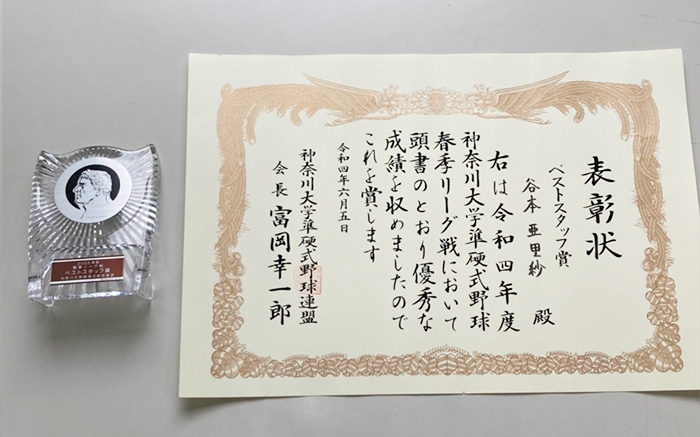 表彰状
ベストスタッフ賞
谷本 亜里紗 殿
右は令和四年度
神奈川大学準硬式野球
春季リーグ戦において
頭書のとおり優秀な
成績を収めましたので
これを賞します
令和四年六月五日
神奈川大学準硬式野球連盟
会長 富岡幸一郎
ベストスタッフ賞